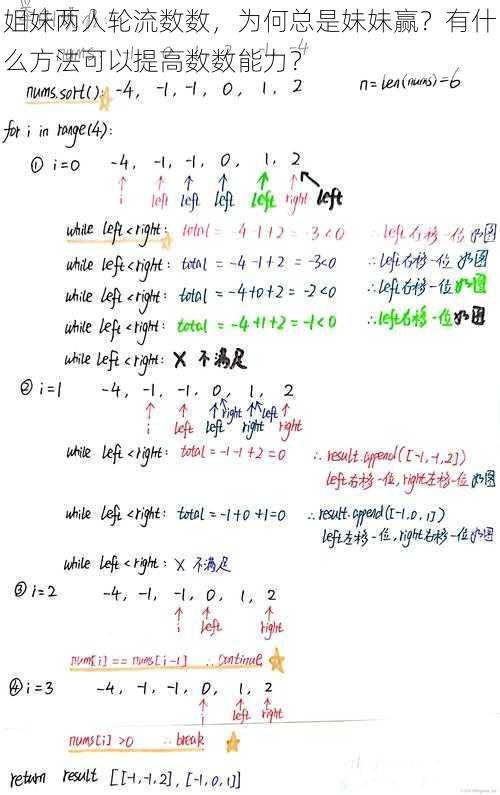 姐妹两人轮流数数，为何总是妹妹赢？有什
么方法可以提高数数能力？
nums.sort(): -4, -1, -1, 0, 1, 2 n=len(nums)=6
for i in range(4):
① i=0 -4, -1, -1, 0, 1, 2
i left left left left right left
while left<right: total = -4-1+2 = -3<0 ∴left右移一位 如图
while left<right: total = -4-1+2 = -3<0 ∴left右移一位 如图
while left<right: total = -4+0+2 = -2<0 ∴left右移一位 如图
while left<right: total = -4+1+2 = -1<0 ∴left右移一位 如图
while left<right: X 不满足
② i=1 -4, -1, -1, 0, 1, 2
right left
i left left right right
while left<right: total = -1-1+2=0 ∴result.append([-1,-1,2])
left右移一位, right左移一位 如图
while left<right: total = -1+0+1=0 ∴result.append([-1,0,1])
left左移一位, right右移一位 如图
while left<right: X 不满足
③ i=2 -4, -1, -1, 0, 1, 2
i left right
nums[i] == nums[i-1] ∴continue
④ i=3 -4, -1, -1, 0, 1, 2
i left right
nums[i] >0 ∴break
return result [[-1,-1,2],[-1,0,1]]